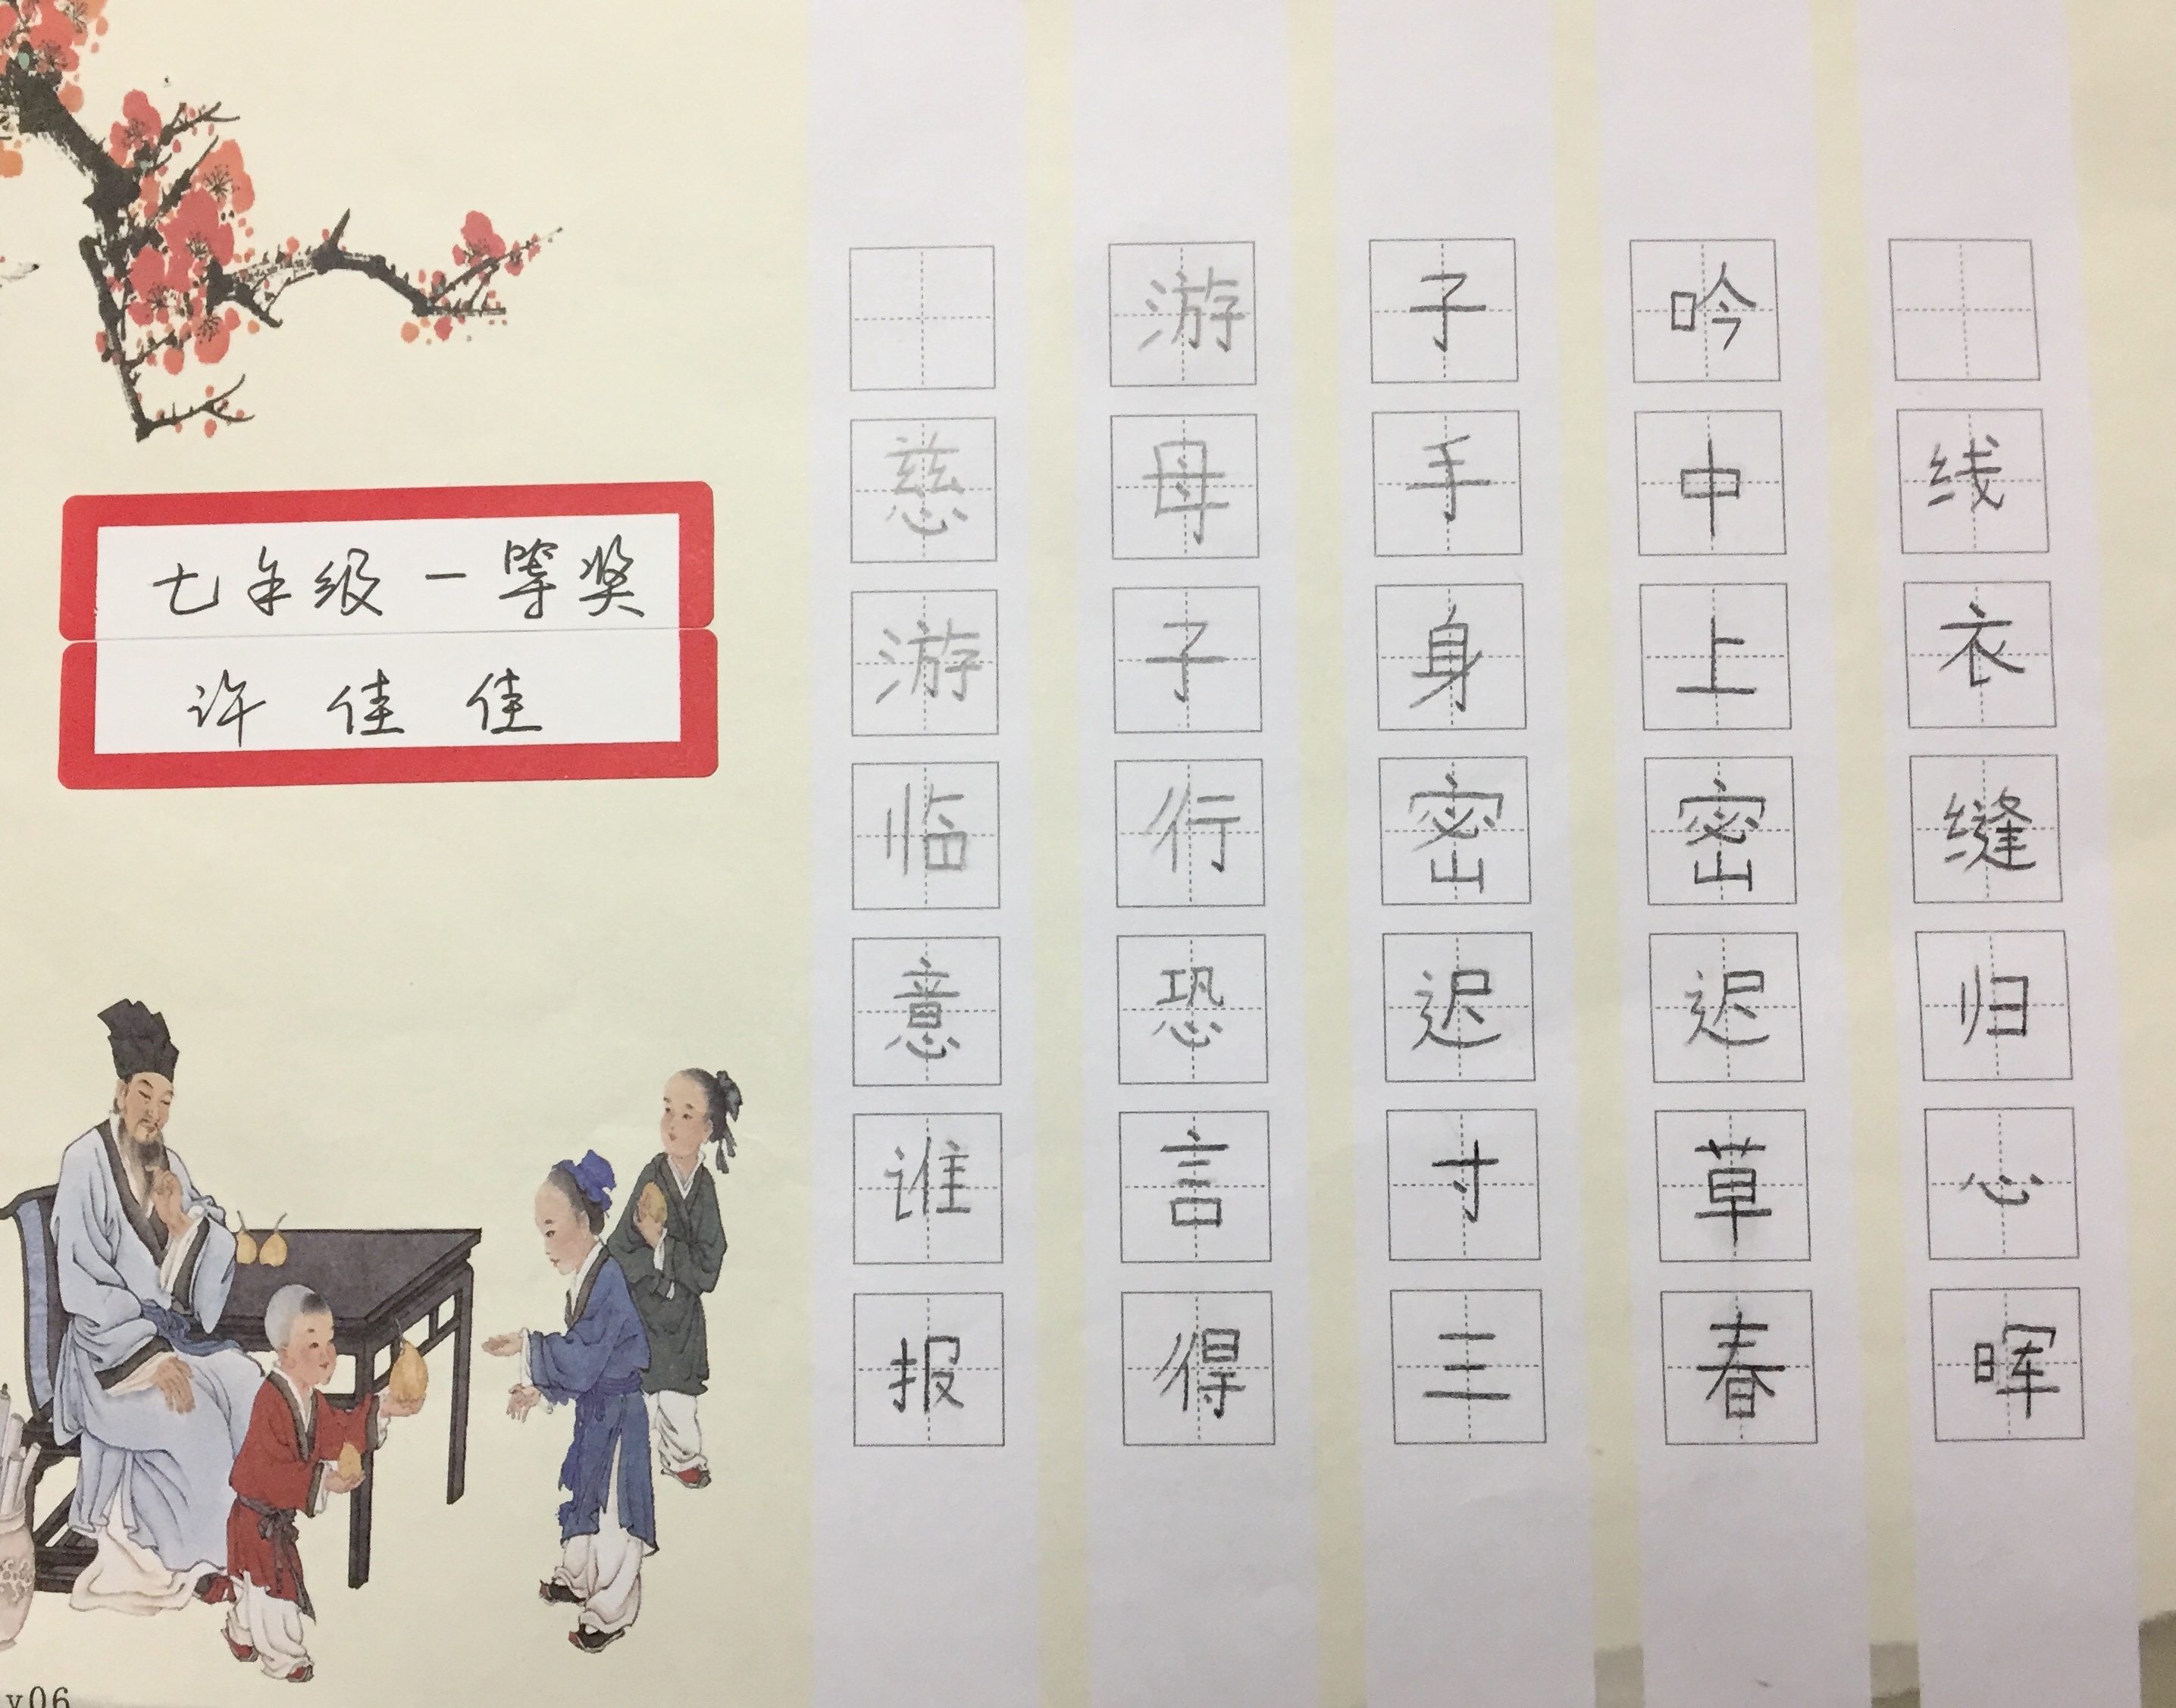 游子吟
慈母手中线
游子身上衣
临行密密缝
意恐迟迟归
谁言寸草心
报得三春晖
七年级一等奖
许佳佳
v06